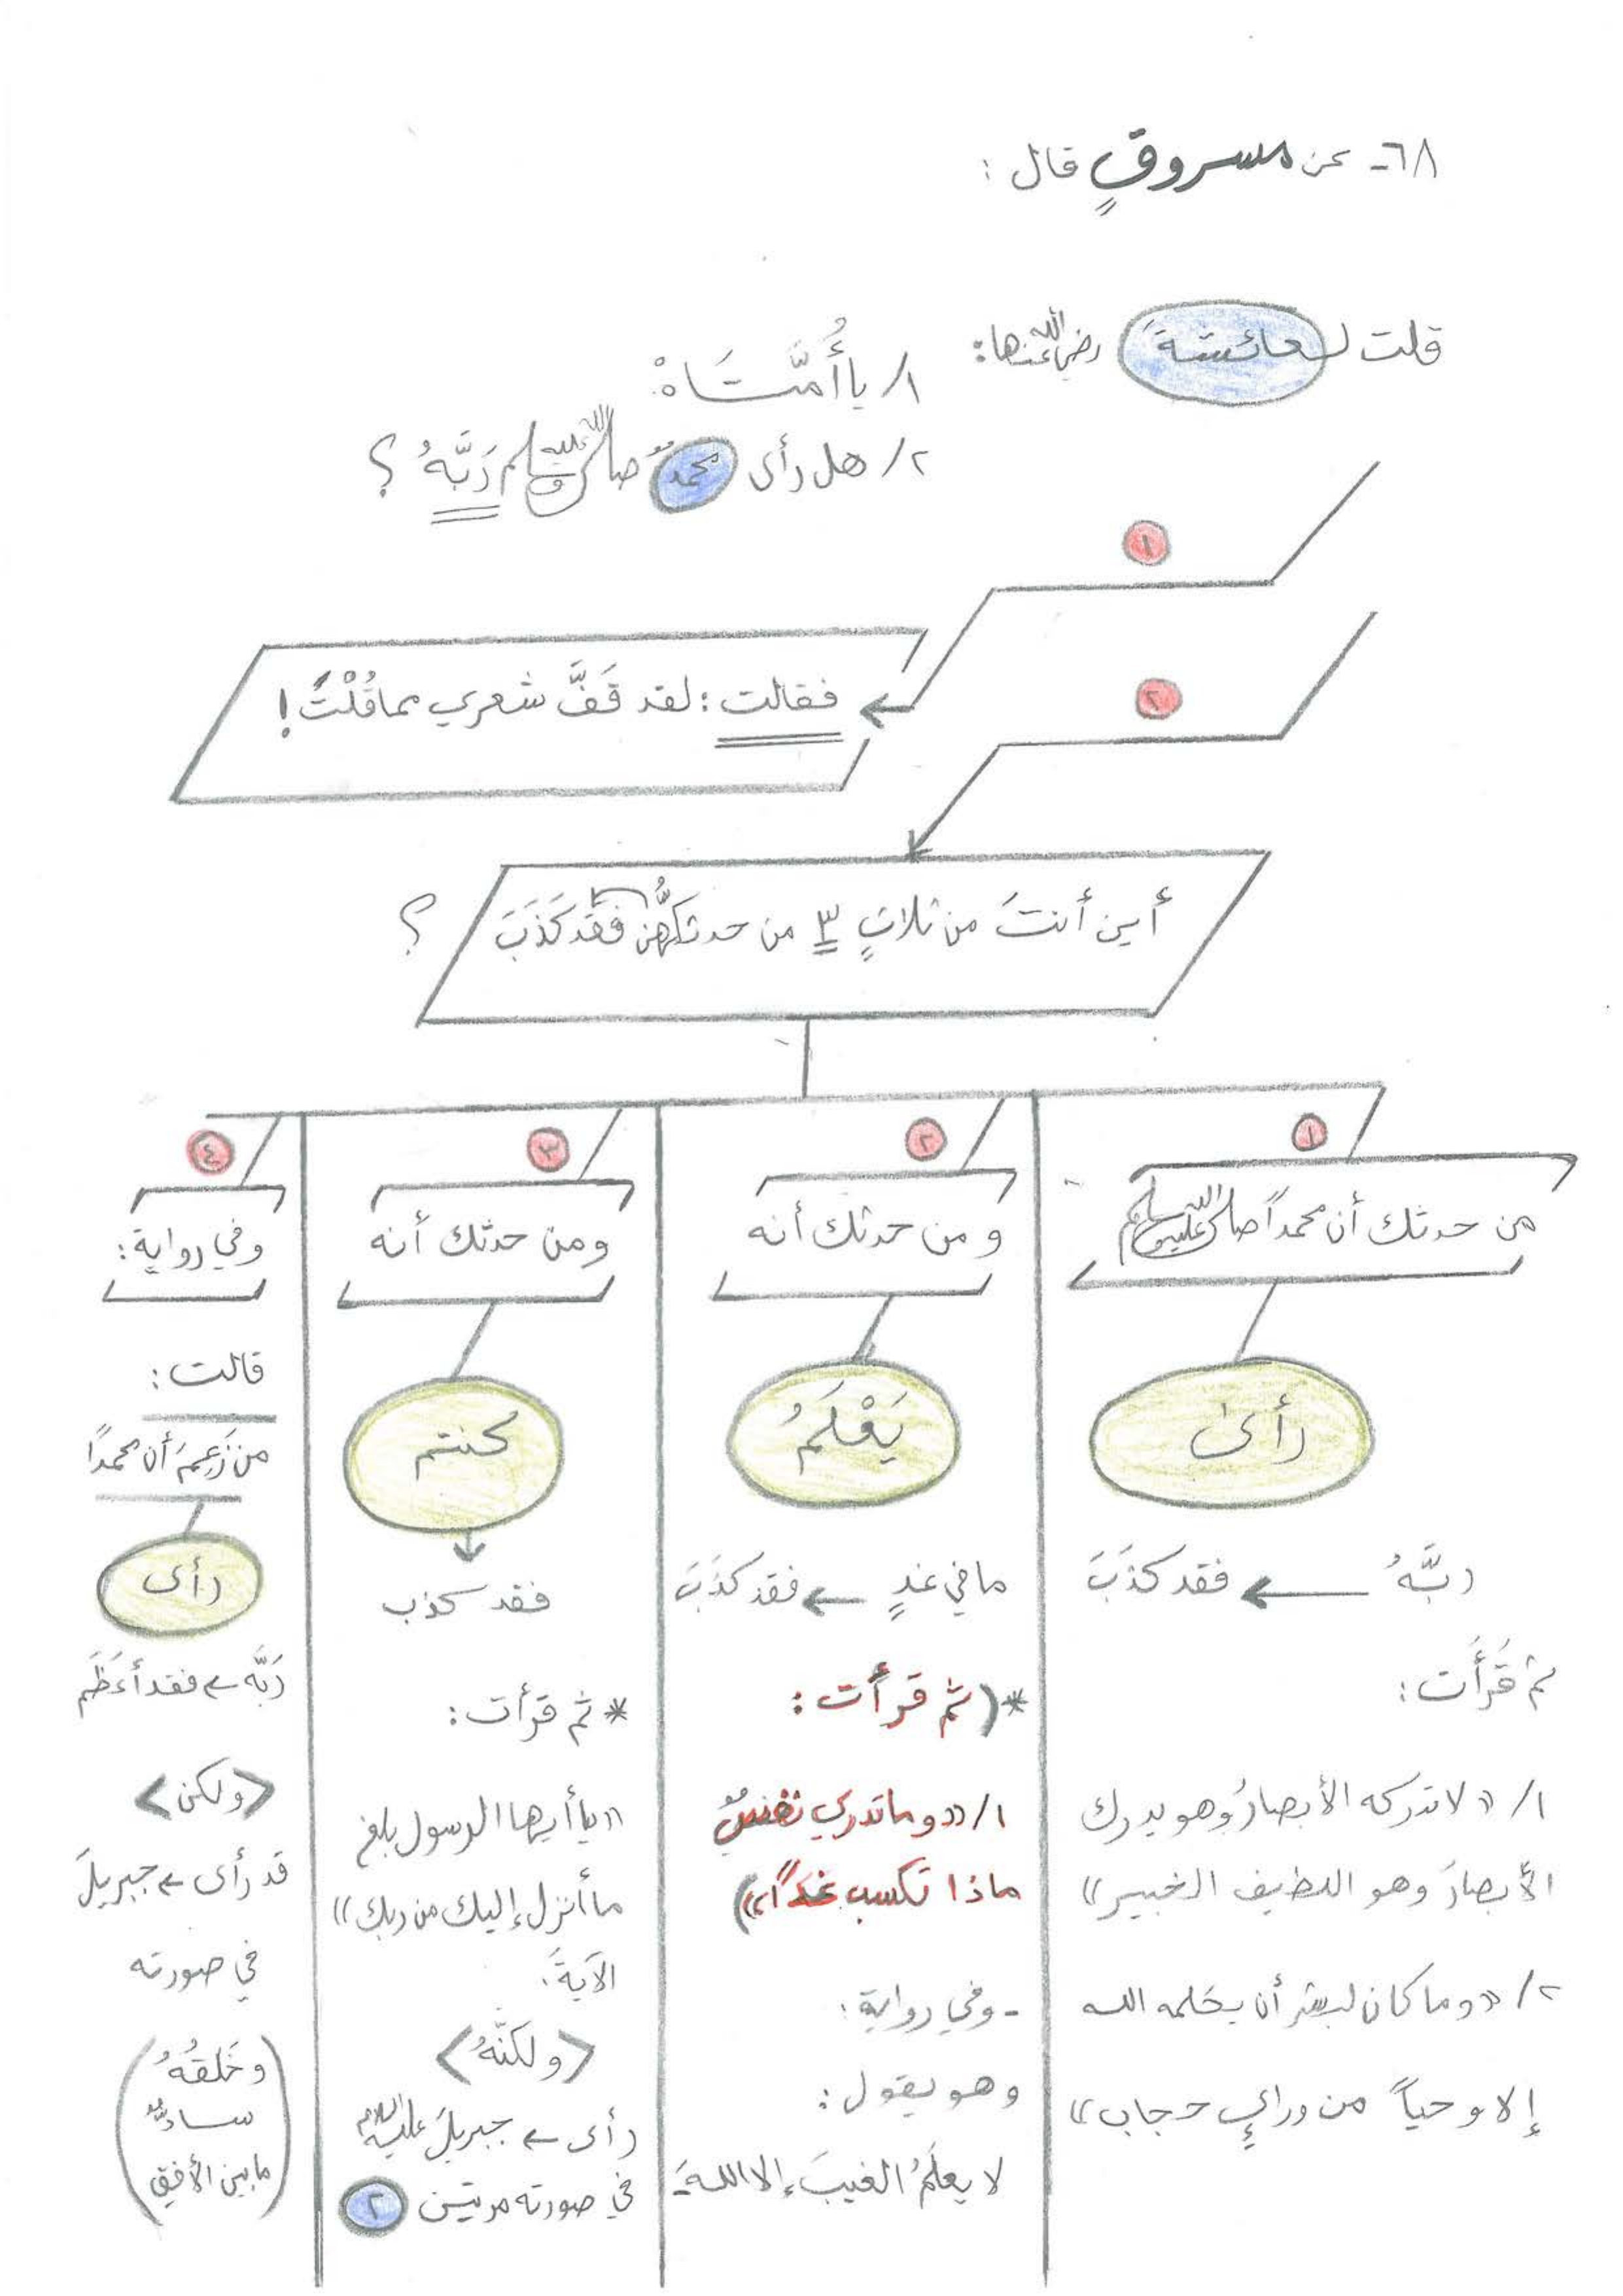 ٦٨- عن مسروقٍ قال :
قلت لـعائشةَ رضي الله عنها:
١/ يا أُمَّتَاهْ:
٢/ هل رأى محمدٌ صلى الله عليه وسلم رَبَّهُ ؟
١
فقالت : لقد قَفَّ شعري مما قُلْتَ !
٢
أين أنتَ من ثلاثٍ ٣ من حدثكهُنَّ فقد كَذَبَ ؟
١
من حدثك أن محمداً صلى الله عليه وسلم
رأى
ربَّهُ ← فقد كذَبَ
ثم قَرَأَت :
١/ «لا تدركه الأبصارُ وهو يدرك
الأبصارَ وهو اللطيف الخبير»
٢/ «وما كان لبشر أن يكلمه الله
إلا وحياً من وراءِ حجاب»
٢
ومن حدثك أنه
يَعْلَمُ
ما في غدٍ ← فقد كذَبَ
* (ثم قرأت :
١/ «وما تدري نفسٌ
ماذا تكسب غداً»)
- وفي رواية :
وهو يقول :
لا يعلَمُ الغيبَ إلا اللهَ
٣
ومن حدثك أنه
كنتم
فقد كذب
* ثم قرأت :
«يا أيها الرسول بلغ
ما أنزل إليك من ربك»
الآيةَ.
<ولكنَّهُ>
رأى ← جبريلَ عليه السلام
في صورته مرتين ٢
٤
وفي رواية :
قالت :
من زَعِمَ أن محمدًا
رأى
رَبَّه ← فقد أعَظَم
<ولكن>
قد رأى ← جبريلَ
في صورته
(وخَلقُهُ
سادٌّ
ما بين الأفق)